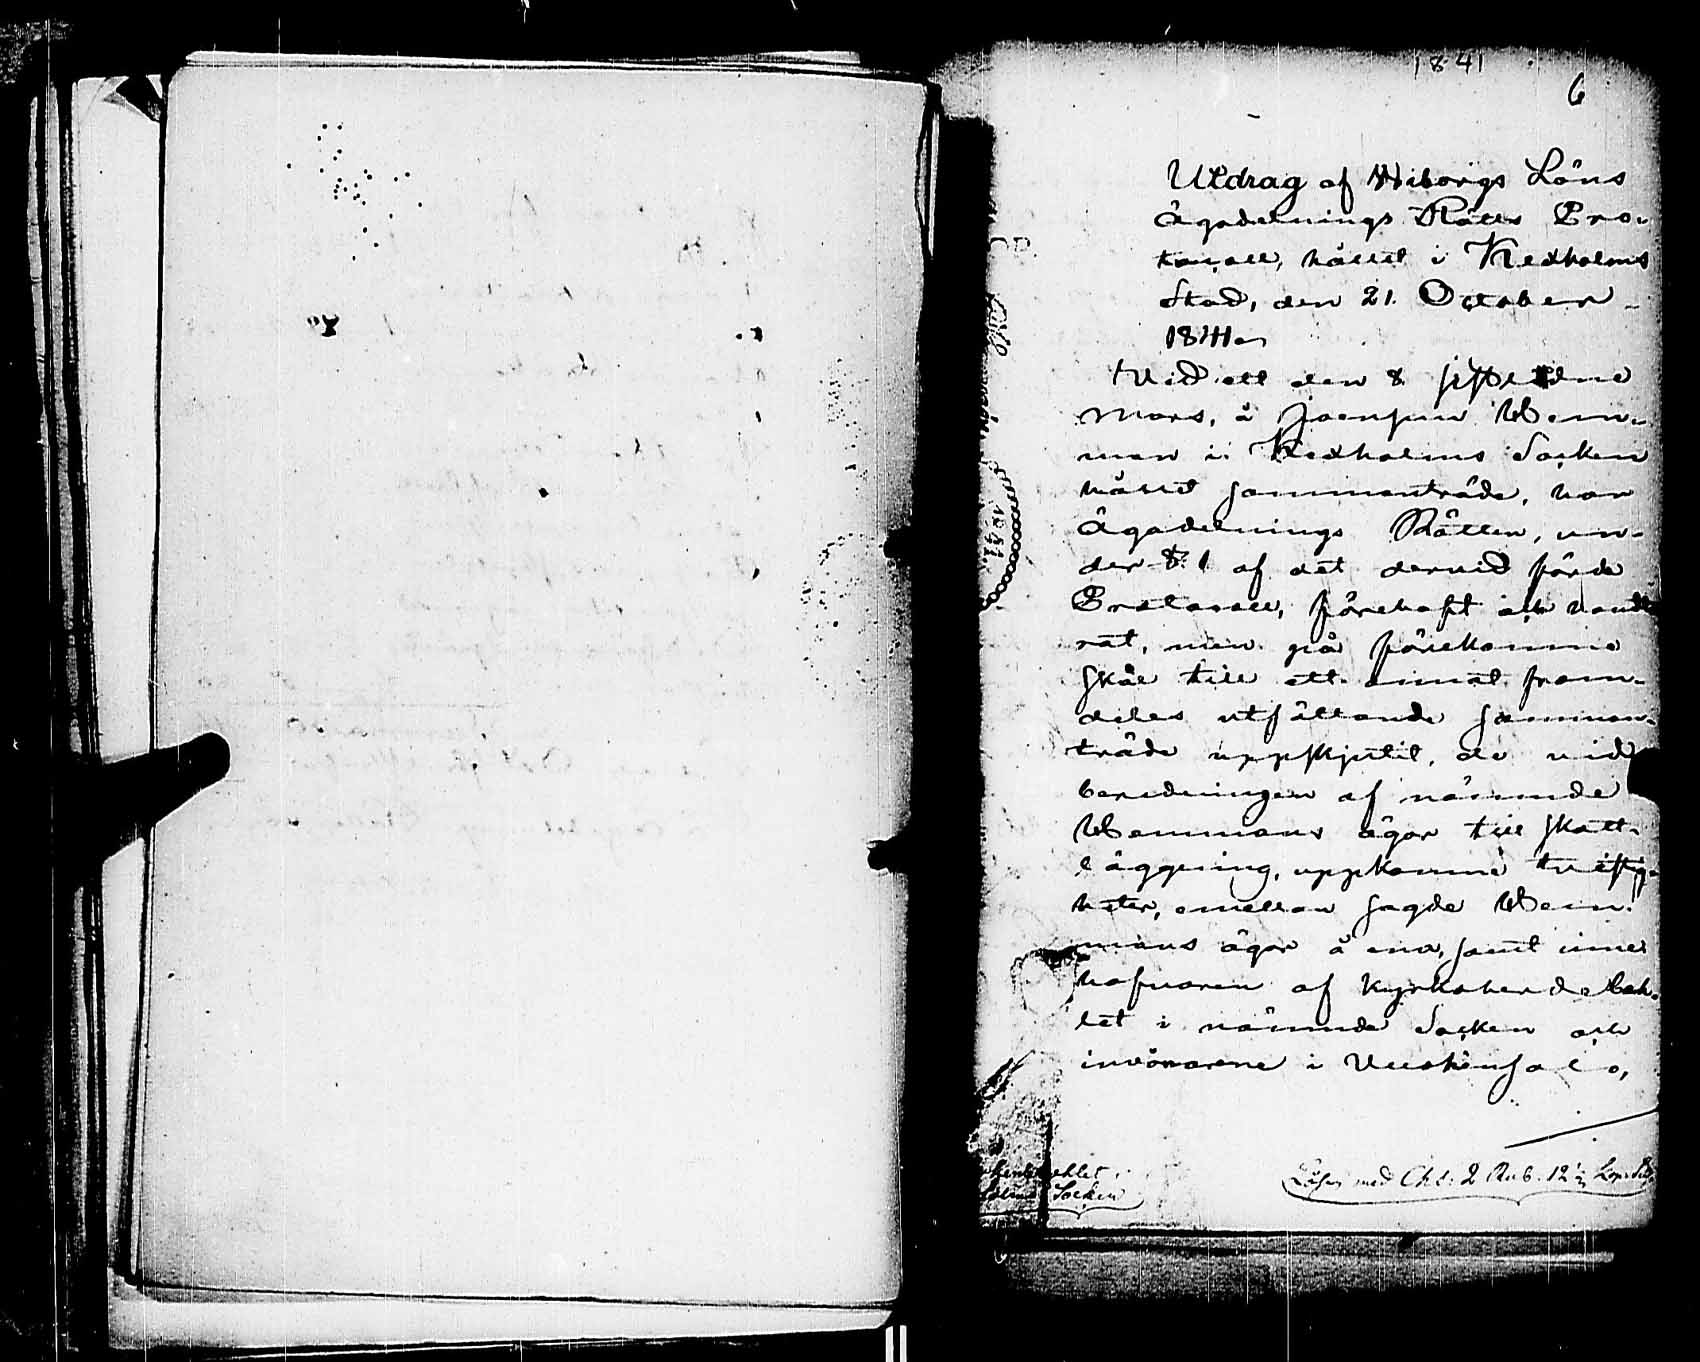 1841
6
Utdrag af Wiborgs Läns
Ägodelnings Rätts Pro-
tocoll, hållit i Kexholms
Stad, den 21. October
1841.
Wid ett den 8 sistledne
Mars, å Joensuu Hem-
man i Kexholms Socken
hållit sammanträde, har
Ägodelnings Rätten, un-
der §. 1 af det dervid förde
Protocoll, förehaft och hand-
rat, men på förekomne
skäl till ett annat fram-
deles utsättande samman-
träde uppskjutit, de vid
beredningen af nämnde
Hemmans ägor till skatt-
läggning, uppkomne tvistig-
heter, emellan sagde Hem-
mans ägor å ena, samt inne-
hafvaren af Kyrkoherde Bohl-
let i nämnde Socken och
invånarene i
Lösen med Chs: 2 Rub. 12½ Kop. Silf
Socken